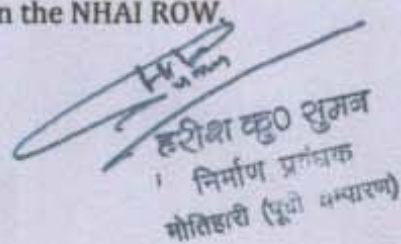 n the NHAI ROW.
हरीश कु0 सुमन
निर्माण प्रबंधक
मोतिहारी (पूर्वी चम्पारण)